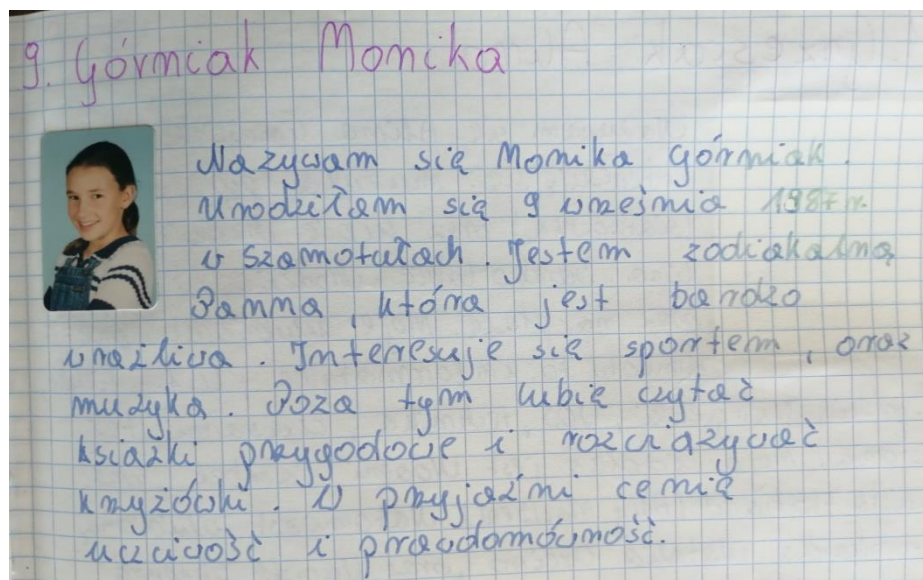 9. Górniak Monika
Nazywam się Monika Górniak.
Urodziłam się 9 września 1987 r.
w Szamotułach. Jestem zodiakalną
Panną, która jest bardzo
wrażliwa. Interesuje się sportem, oraz
muzyką. Poza tym lubię czytać
książki przygodowe i rozwiązywać
krzyżówki. W przyjaźni cenię
uczciwość i prawdomówność.